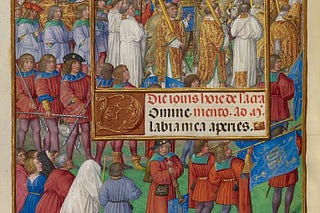 Die Iouis hore de sacra
Domine mento. ad m̄.
labia mea aperies.